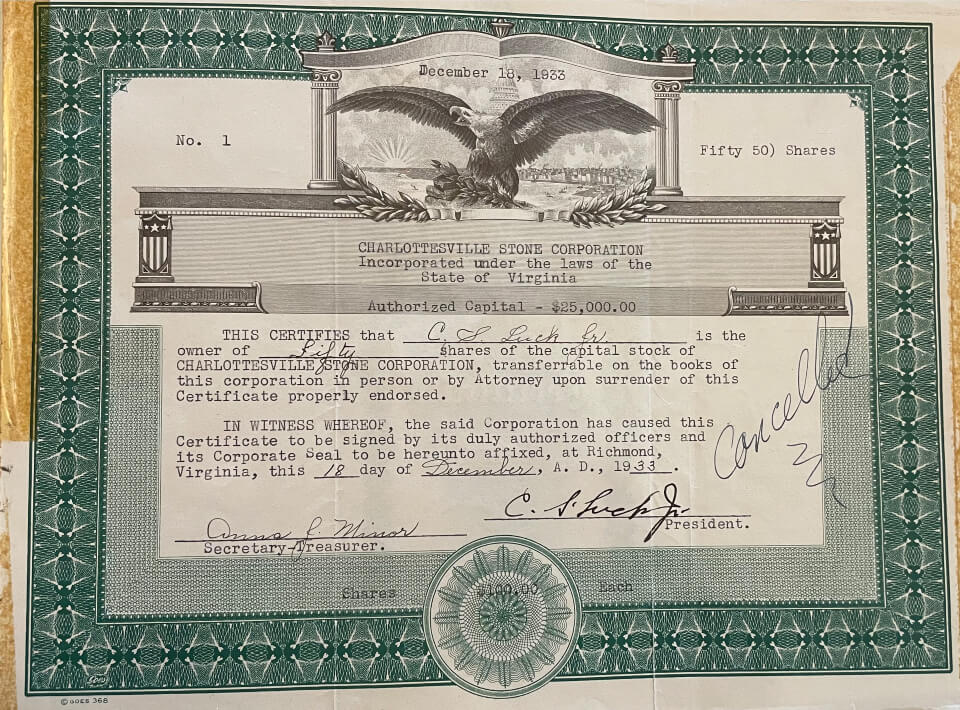 December 18, 1933
No. 1
Fifty 50) Shares
CHARLOTTESVILLE STONE CORPORATION
Incorporated under the laws of the
State of Virginia
Authorized Capital - $25,000.00
THIS CERTIFIES that C. S. Luck Jr. is the
owner of Fifty shares of the capital stock of
CHARLOTTESVILLE STONE CORPORATION, transferrable on the books of
this corporation in person or by Attorney upon surrender of this
Certificate properly endorsed.
IN WITNESS WHEREOF, the said Corporation has caused this
Certificate to be signed by its duly authorized officers and
its Corporate Seal to be hereunto affixed, at Richmond,
Virginia, this 18 day of December, A. D., 1933.
Cancelled
C. S. Luck Jr.
President.
Anna J. Minor
Secretary-Treasurer.
Shares $100.00 Each
GOES
© GOES 368